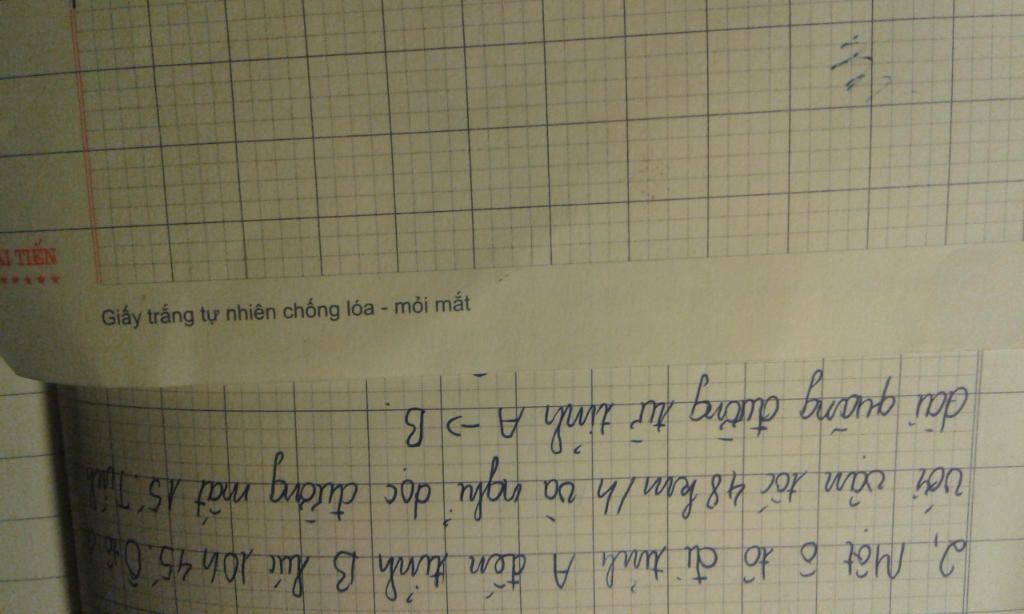 ẢI TIẾN
Giấy trắng tự nhiên chống lóa - mỏi mắt
2, Một ô tô đi tỉnh A đến tỉnh B lúc 10h 45'. Ô tô
với vận tốc 48 km/h và nghỉ dọc đường mất 15'. Tính
dài quãng đường từ tỉnh A → B.